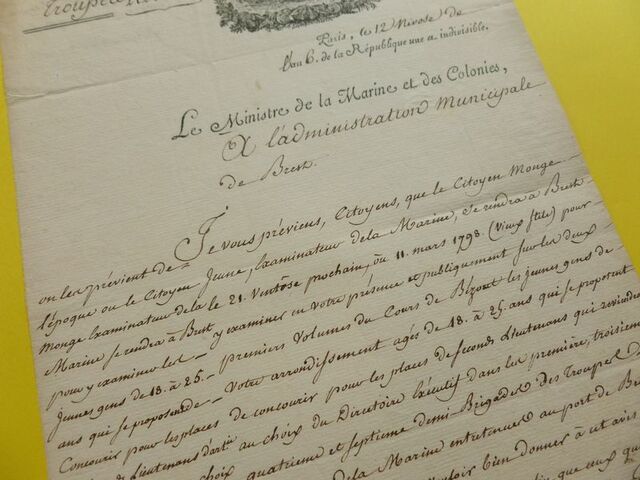 Troupes
Paris, le 12 Nivose de
l'an 6. de la République une & indivisible.
Le Ministre de la Marine et des Colonies,
A l'administration Municipale
de Brest.
on les prévient de
l'époque ou le Citoyen
Monge Examinateur de la
Marine se rendra à Brest
pour y examiner les
jeunes gens de 18. à 25.
ans qui se proposent de
Concourir pour les places
de Lieutenants d'artie
Je vous préviens, Citoyens, que le Citoyen Monge
Jeune, Examinateur de la Marine, se rendra à Brest
le 21. Ventôse prochain, ou 11. mars 1798. (Vieux stile) pour
y examiner en votre présence et publiquement sur les deux
premiers volumes du Cours de Bézout les jeunes gens de
votre arrondissement agés de 18. à 25. ans qui se proposent
de concourir pour les places de seconds Lieutenants qui
au choix du Directoire Exécutif dans les première, troisième
quatrième et septième demi-Brigades des Troupes
de la Marine entretenues au port de
vouloir bien donner à cet avis
que ceux